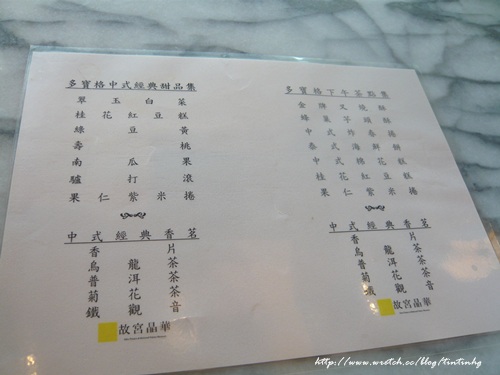 多寶格中式經典甜品集
翠玉白菜
桂花紅豆糕
綠豆黃
壽桃
南瓜果
驢打滾
果仁紫米捲
中式經典香茗
香片
烏龍茶
普洱茶
菊花茶
鐵觀音
故宮晶華
多寶格下午茶點集
金牌叉燒酥
蜂巢芋絲酥
中式炸春捲
泰式海鮮餅
中式綿花糕
桂花紅豆糕
果仁紫米捲
中式經典香茗
香片
烏龍茶
普洱茶
菊花茶
鐵觀音
故宮晶華
http://www.wretch.cc/blog/tintinhg